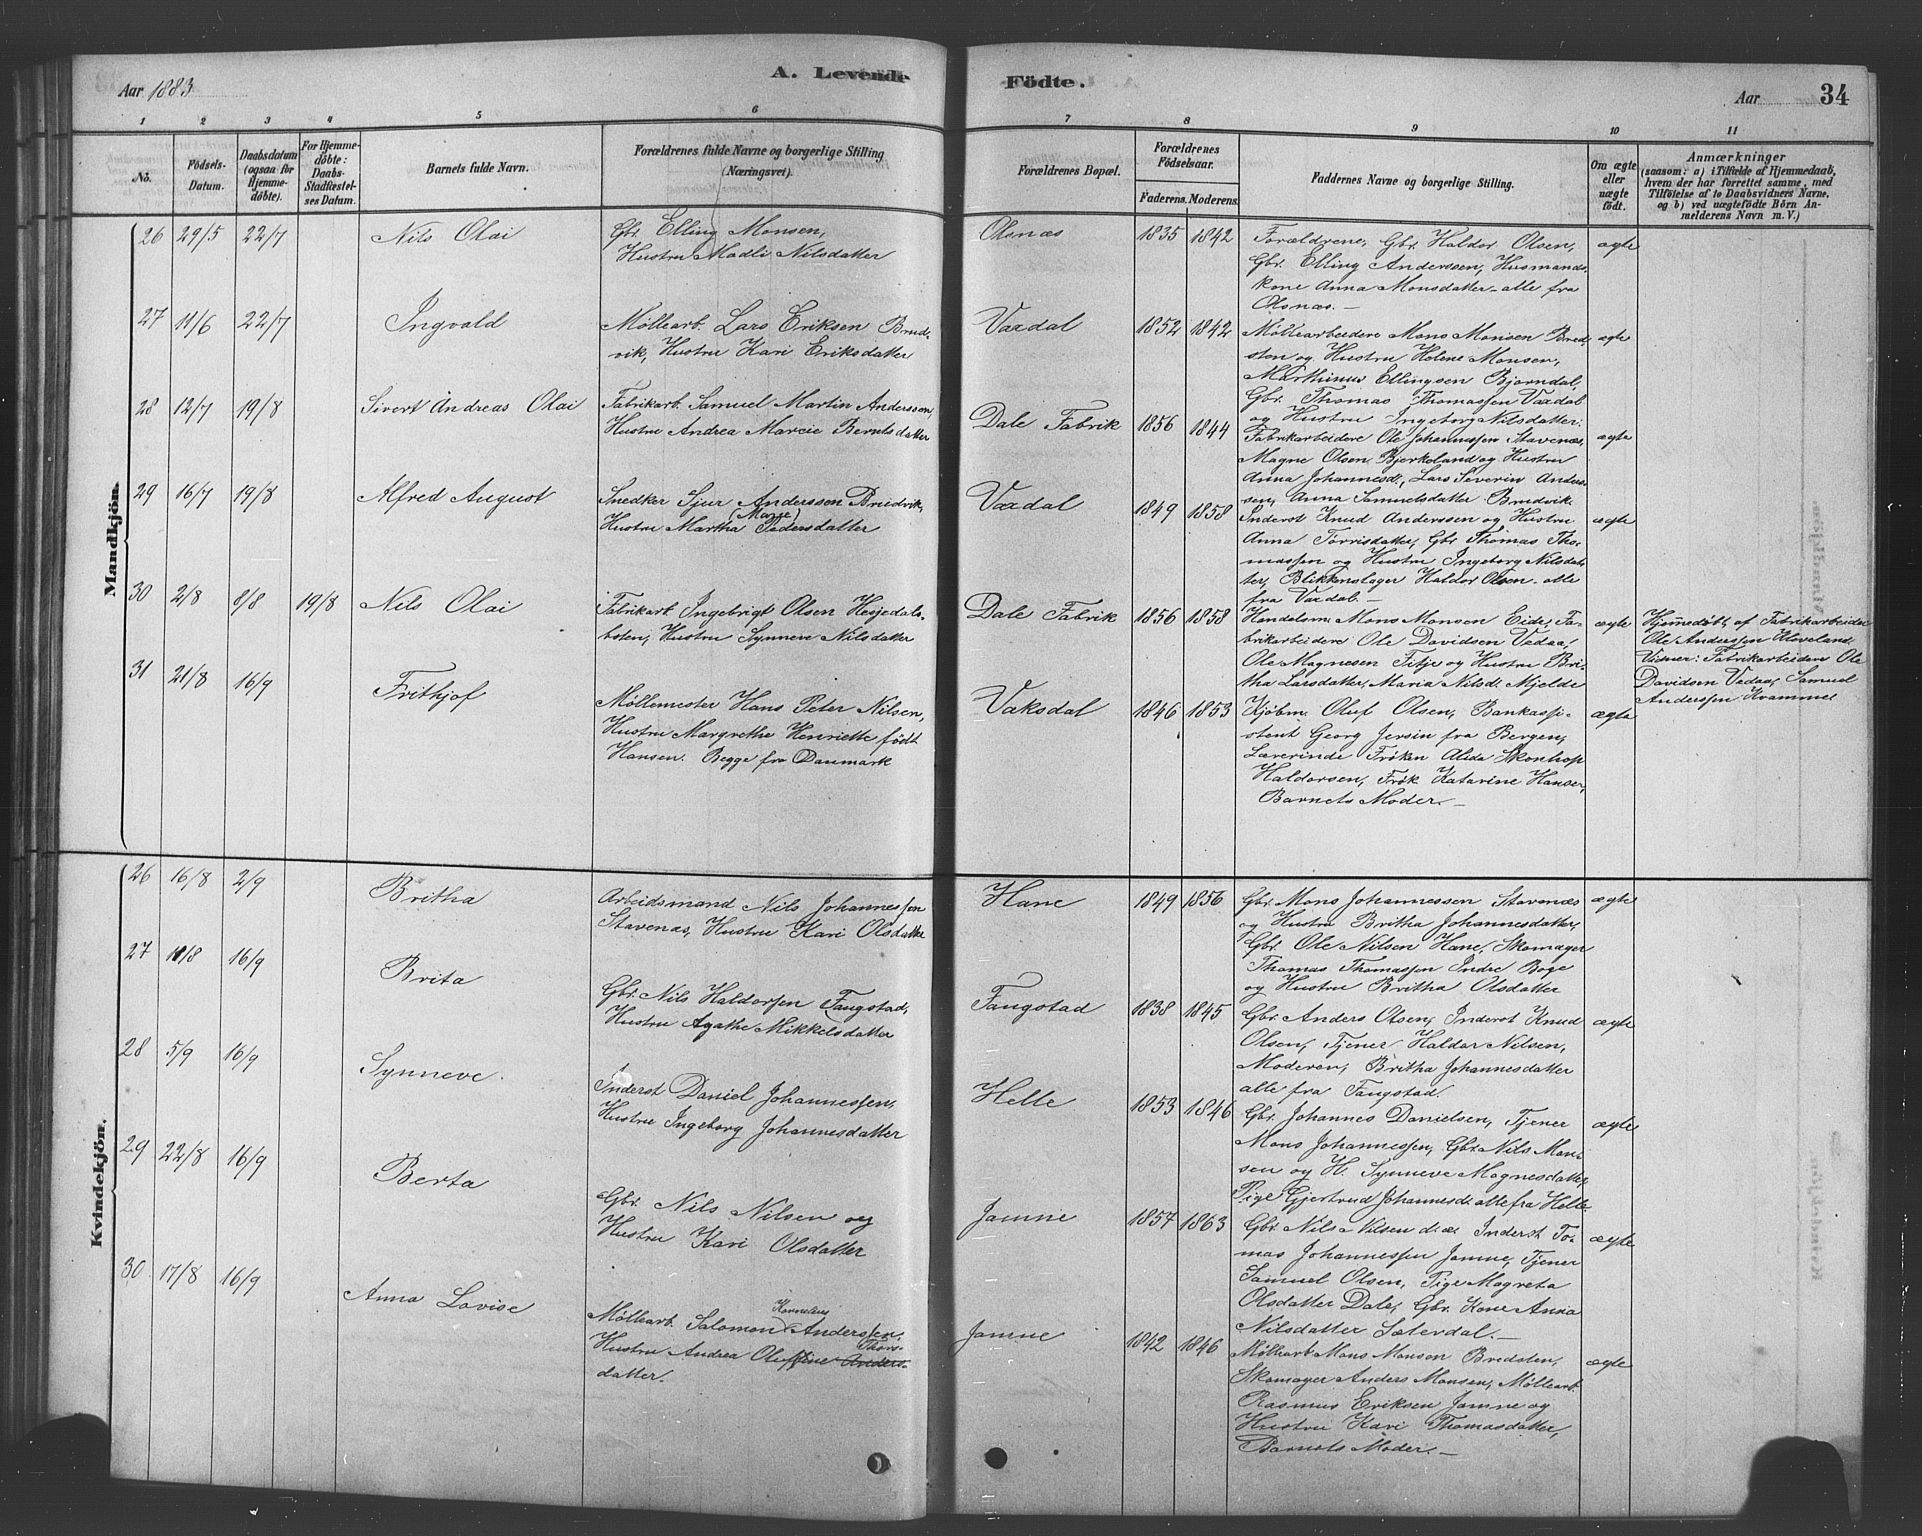 Aar 1883
A. Levende
Födte.
Aar 34
1 2 3 4 5 6 7 8 9 10 11
No.
Födsels-Datum.
Daabsdatum (ogsaa for Hjemmedöbte).
For Hjemmedöbte: Daabs-Stadfæstelses Datum.
Barnets fulde Navn.
Forældrenes fulde Navne og borgerlige Stilling
(Næringsvei).
Forældrenes Bopæl.
Forældrenes Födselsaar.
Faderens. Moderens.
Faddernes Navne og borgerlig Stilling.
Om ægte eller uægte födt.
Anmærkninger
(saasom: a) i Tilfælde af Hjemmedaab,
hvem der har forrettet samme, med
Tilföielse af to Daabsvidners Navne,
og b) ved uægtefödte Börn An-
melderens Navn m. V.)
Mandkjön.
26 29/5 22/7 Nils Olai
Gbr. Elling Monsen,
Hustru Madli Nilsdatter
Olsnæs 1835 1842
Forældrene, Gbr. Haldor Olsen,
Gbr. Elling Anderssen, Husmands-
kone Anna Monsdatter - alle fra
Olsnæs. —
ægte
27 11/6 22/7 Ingvald
Møllearb. Lars Eriksen Brud-
vik, Hustru Kari Eriksdatter
Vaxdal 1852 1842
Møllearbeidere Mons Monsen Bred-
sten og Hustru Helene Monsen,
Marthinus Ellingsen Bjorndal,
Gbr. Thomas Thomassen Vaxdal
og Hustru Ingeborg Nilsdatter.
ægte
28 12/7 19/8 Sivert Andreas Olai
Fabrikarb. Samuel Martin Anderssen
Hustru Andrea Marcie Berntsdatter
Dale Fabrik 1856 1844
Fabrikarbeidere Ole Johannessen Stavenæs,
Magne Olsen Bjerkeland og Hustru
Anna Johannesd., Lars Severin Anders-
sen, Anna Samuelsdatter Brudvik.
ægte
29 16/7 19/8 Alfred August
Snedker Sjur Anderssen Brudvik,
Hustru Martha (Marie) Pedersdatter
Vaxdal 1849 1858
Inderst Knud Anderssen og Hustru
Anna Torrisdatter, Gbr Thomas Tho-
massen og Hustru Ingeborg Nilsdat-
ter, Blikkenslager Haldor Olsen - alle
fra Vaxdal. —
ægte
30 2/8 8/8 19/8 Nils Olai
Fabrikarb Ingebrigt Olsen Hesjedals-
boten, Hustru Synneve Nilsdatter
Dale Fabrik 1856 1858
Handelsm Mons Monsen Eide, Fa-
brikarbeidere Ole Davidsen Vedaa,
Ole Magnesen Fitje og Hustru Bri-
tha Larsdatter, Maria Nilsd. Mjelde
ægte
Hjemmedøbt af Fabrikarbeider
Ole Anderssen Kloveland
Vidner: Fabrikarbeidere Ole
Davidsen Vedaa, Samuel
Anderssen Kvammel
31 21/8 16/9 Frithjof
Møllemester Hans Peter Nilsen,
Hustru Margrethe Henriette født
Hansen. Begge fra Danmark
Vaksdal 1846 1853
Kjøbm. Oluf Olsen, Bankassi-
stent Georg Jersin fra Bergen,
Lærerinde Frøken Alida Skonhop
Haldorsen, Frøk Katarine Hansen,
Barnets Moder. —
ægte
Kvindekjön.
26 16/8 2/9 Britha
Arbeidsmand Nils Johannessen
Stavenæs, Hustru Kari Olsdatter
Hane 1849 1856
Gbr. Mons Johannessen Stavenæs
og Hustru Britha Johannesdatter,
Gbr. Ole Nilsen Hane, Skomager
Thomas Thomassen Indre Boge
og Hustru Britha Olsdatter
ægte
27 10/8 16/9 Brita
Gbr. Nils Haldorsen Faugstad,
Hustru Agathe Mikkelsdatter
Faugstad 1838 1845
Gbr. Anders Olsen, Inderst Knud
Olsen, Tjener Haldor Nilsen,
Moderen, Britha Johannesdatter
alle fra Faugstad.
ægte
28 5/9 16/9 Synneve.
Inderst Daniel Johannessen,
Hustru Ingeborg Johannesdatter
Helle 1853 1846
Gbr. Johannes Danielsen, Tjener
Mons Johannessen, Gbr. Nils Mon-
sen og H. Synneve Magnesdatter,
Pige Gjertrud Johannesd. alle fra Helle
ægte
29 22/8 16/9 Berta
Gbr. Nils Nilsen og
Hustru Kari Olsdatter
Jamne 1857 1863
Gbr. Nils Nilsen d. æ. Inderst To-
mas Johannessen Jamne, Tjener
Samuel Olsen, Pige Magreta
Olsdatter Dale, Gbr. Kone Anna
Nilsdatter Sæterdal. —
ægte
30 17/8 16/9 Anna Lovise
Møllearb. Salomon Kornelius Anderssen,
Hustru Andrea Oluffine Anders- Thors-
datter.
Jamne 1842 1846
Møllearb Mons Monsen Bredsten,
Skomager Anders Monsen, Møllearb.
Rasmus Eriksen Jamne og
Hustru Kari Thomasdatter,
Barnets Moder. —
ægte